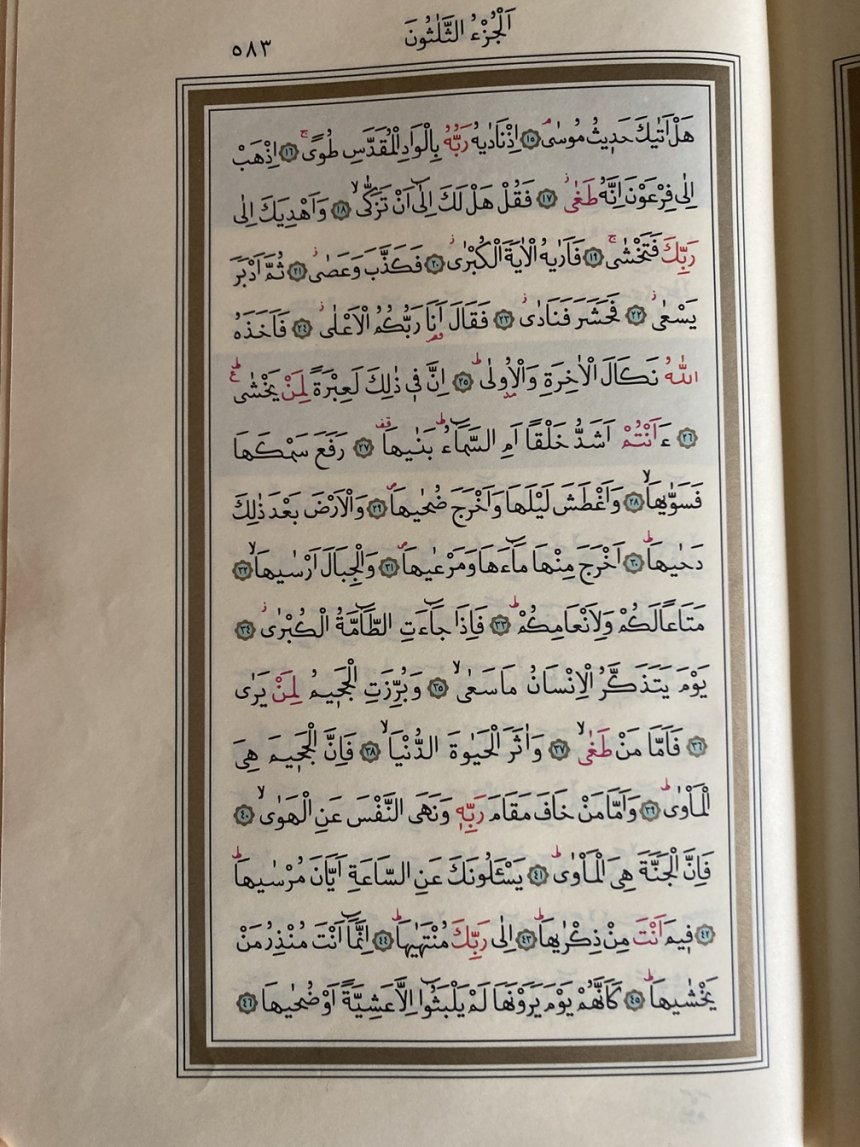 اَلْجُزْءُ الثَّلٰثُونَ
٥٨٣
هَلْ اَتٰيكَ حَدٖيثُ مُوسٰىۢ ١٥ اِذْ نَادٰيهُ رَبُّهُ بِالْوَادِ الْمُقَدَّسِ طُوًىۚ ١٦ اِذْهَبْ
اِلٰى فِرْعَوْنَ اِنَّهُ طَغٰىۘ ١٧ فَقُلْ هَلْ لَكَ اِلٰٓى اَنْ تَزَكّٰىۙ ١٨ وَاَهْدِيَكَ اِلٰى
رَبِّكَ فَتَخْشٰىۚ ١٩ فَاَرٰيهُ الْاٰيَةَ الْكُبْرٰىؗ ٢٠ فَكَذَّبَ وَعَصٰىؗ ٢١ ثُمَّ اَدْبَرَ
يَسْعٰىؗ ٢٢ فَحَشَرَ فَنَادٰىؗ ٢٣ فَقَالَ اَنَا۬ رَبُّكُمُ الْاَعْلٰىؗ ٢٤ فَاَخَذَهُ
اللّٰهُ نَكَالَ الْاٰخِرَةِ وَالْاُو۫لٰىؕ ٢٥ اِنَّ فٖى ذٰلِكَ لَعِبْرَةً لِمَنْ يَخْشٰىؕ ع
٢٦ ءَاَنْتُمْ اَشَدُّ خَلْقًا اَمِ السَّمَٓاءُؕ بَنٰيهَاࣞ ٢٧ رَفَعَ سَمْكَهَا
فَسَوّٰيهَاۙ ٢٨ وَاَغْطَشَ لَيْلَهَا وَاَخْرَجَ ضُحٰيهَاࣕ ٢٩ وَالْاَرْضَ بَعْدَ ذٰلِكَ
دَحٰيهَاؕ ٣٠ اَخْرَجَ مِنْهَا مَٓاءَهَا وَمَرْعٰيهَاࣕ ٣١ وَالْجِبَالَ اَرْسٰيهَاۙ ٣٢
مَتَاعًا لَكُمْ وَلِاَنْعَامِكُمْؕ ٣٣ فَاِذَا جَٓاءَتِ الطَّٓامَّةُ الْكُبْرٰىؗ ٣٤
يَوْمَ يَتَذَكَّرُ الْاِنْسَانُ مَا سَعٰىۙ ٣٥ وَبُرِّزَتِ الْجَحٖيمُ لِمَنْ يَرٰى
٣٦ فَاَمَّا مَنْ طَغٰىۙ ٣٧ وَاٰثَرَ الْحَيٰوةَ الدُّنْيَاۙ ٣٨ فَاِنَّ الْجَحٖيمَ هِىَ
الْمَاْوٰىؕ ٣٩ وَاَمَّا مَنْ خَافَ مَقَامَ رَبِّهٖ وَنَهَى النَّفْسَ عَنِ الْهَوٰىۙ ٤٠
فَاِنَّ الْجَنَّةَ هِىَ الْمَاْوٰىؕ ٤١ يَسْـَٔلُونَكَ عَنِ السَّاعَةِ اَيَّانَ مُرْسٰيهَاؕ
٤٢ فٖيمَ اَنْتَ مِنْ ذِكْرٰيهَاؕ ٤٣ اِلٰى رَبِّكَ مُنْتَهٰيهَاؕ ٤٤ اِنَّمَٓا اَنْتَ مُنْذِرُ مَنْ
يَخْشٰيهَاؕ ٤٥ كَاَنَّهُمْ يَوْمَ يَرَوْنَهَا لَمْ يَلْبَثُٓوا اِلَّا عَشِيَّةً اَوْ ضُحٰيهَا ٤٦